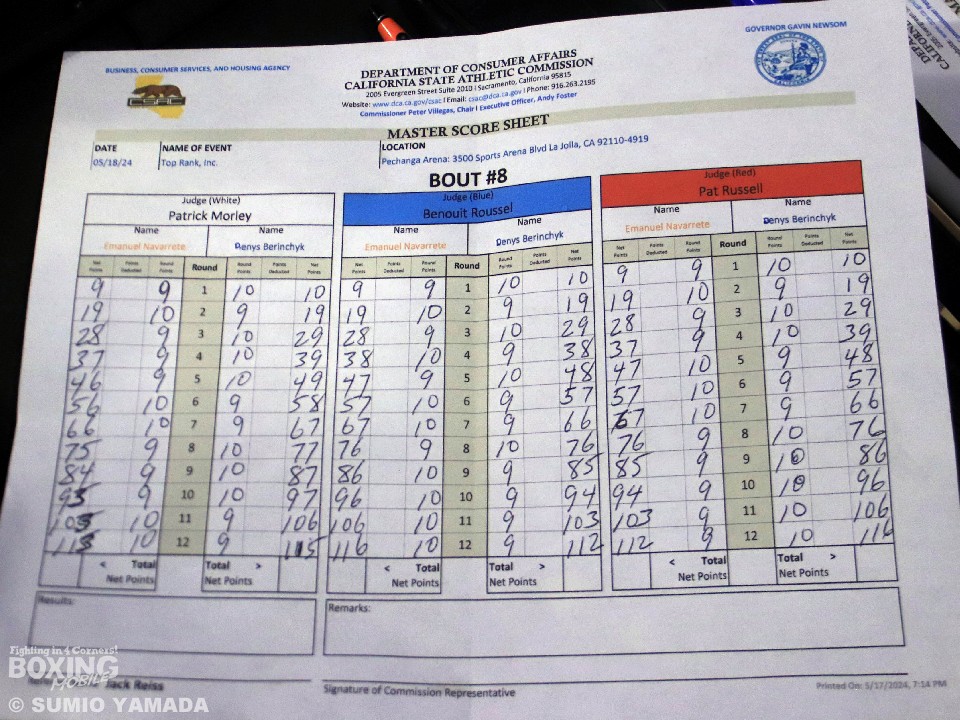 GOVERNOR GAVIN NEWSOM
BUSINESS, CONSUMER SERVICES, AND HOUSING AGENCY
CSAC
DEPARTMENT OF CONSUMER AFFAIRS
CALIFORNIA STATE ATHLETIC COMMISSION
2005 Evergreen Street Suite 2010 | Sacramento, California 95815
Website: www.dca.ca.gov/csac | Email: csac@dca.ca.gov | Phone: 916.263.2195
Commissioner Peter Villegas, Chair | Executive Officer, Andy Foster
MASTER SCORE SHEET
DATE NAME OF EVENT LOCATION
05/18/24 Top Rank, Inc. Pechanga Arena: 3500 Sports Arena Blvd La Jolla, CA 92110-4919
BOUT #8
Judge (White) Judge (Blue) Judge (Red)
Patrick Morley Benouit Roussel Pat Russell
Name Name Name Name Name Name
Emanuel Navarrete Denys Berinchyk Emanuel Navarrete Denys Berinchyk Emanuel Navarrete Denys Berinchyk
Net Points Points Deducted Round Points Round Round Points Points Deducted Net Points Net Points Points Deducted Round Points Round Round Points Points Deducted Net Points Net Points Points Deducted Round Points Round Round Points Points Deducted Net Points
9 9 1 10 10 9 9 1 10 10 9 9 1 10 10
19 10 2 9 19 19 10 2 9 19 19 10 2 9 19
28 9 3 10 29 28 9 3 10 29 28 9 3 10 29
37 9 4 10 39 38 10 4 9 38 37 9 4 10 39
46 9 5 10 49 47 9 5 10 48 47 10 5 9 48
56 10 6 9 58 57 10 6 9 57 57 10 6 9 57
66 10 7 9 67 67 10 7 9 66 67 10 7 9 66
75 9 8 10 77 76 9 8 10 76 76 9 8 10 76
84 9 9 10 87 86 10 9 9 85 85 9 9 10 86
93 9 10 10 97 96 10 10 9 94 94 9 10 10 96
103 10 11 9 106 106 10 11 9 103 103 9 11 10 106
113 10 12 9 115 116 10 12 9 112 112 9 12 10 116
< Total Total > < Total Total > < Total Total >
Net Points Net Points Net Points Net Points Net Points Net Points
Results: Remarks:
Jack Reiss
Signature of Commission Representative
Printed On: 5/17/2024, 7:14 PM
Fighting in 4 Corners!
BOXING
MOBILE
© SUMIO YAMADA